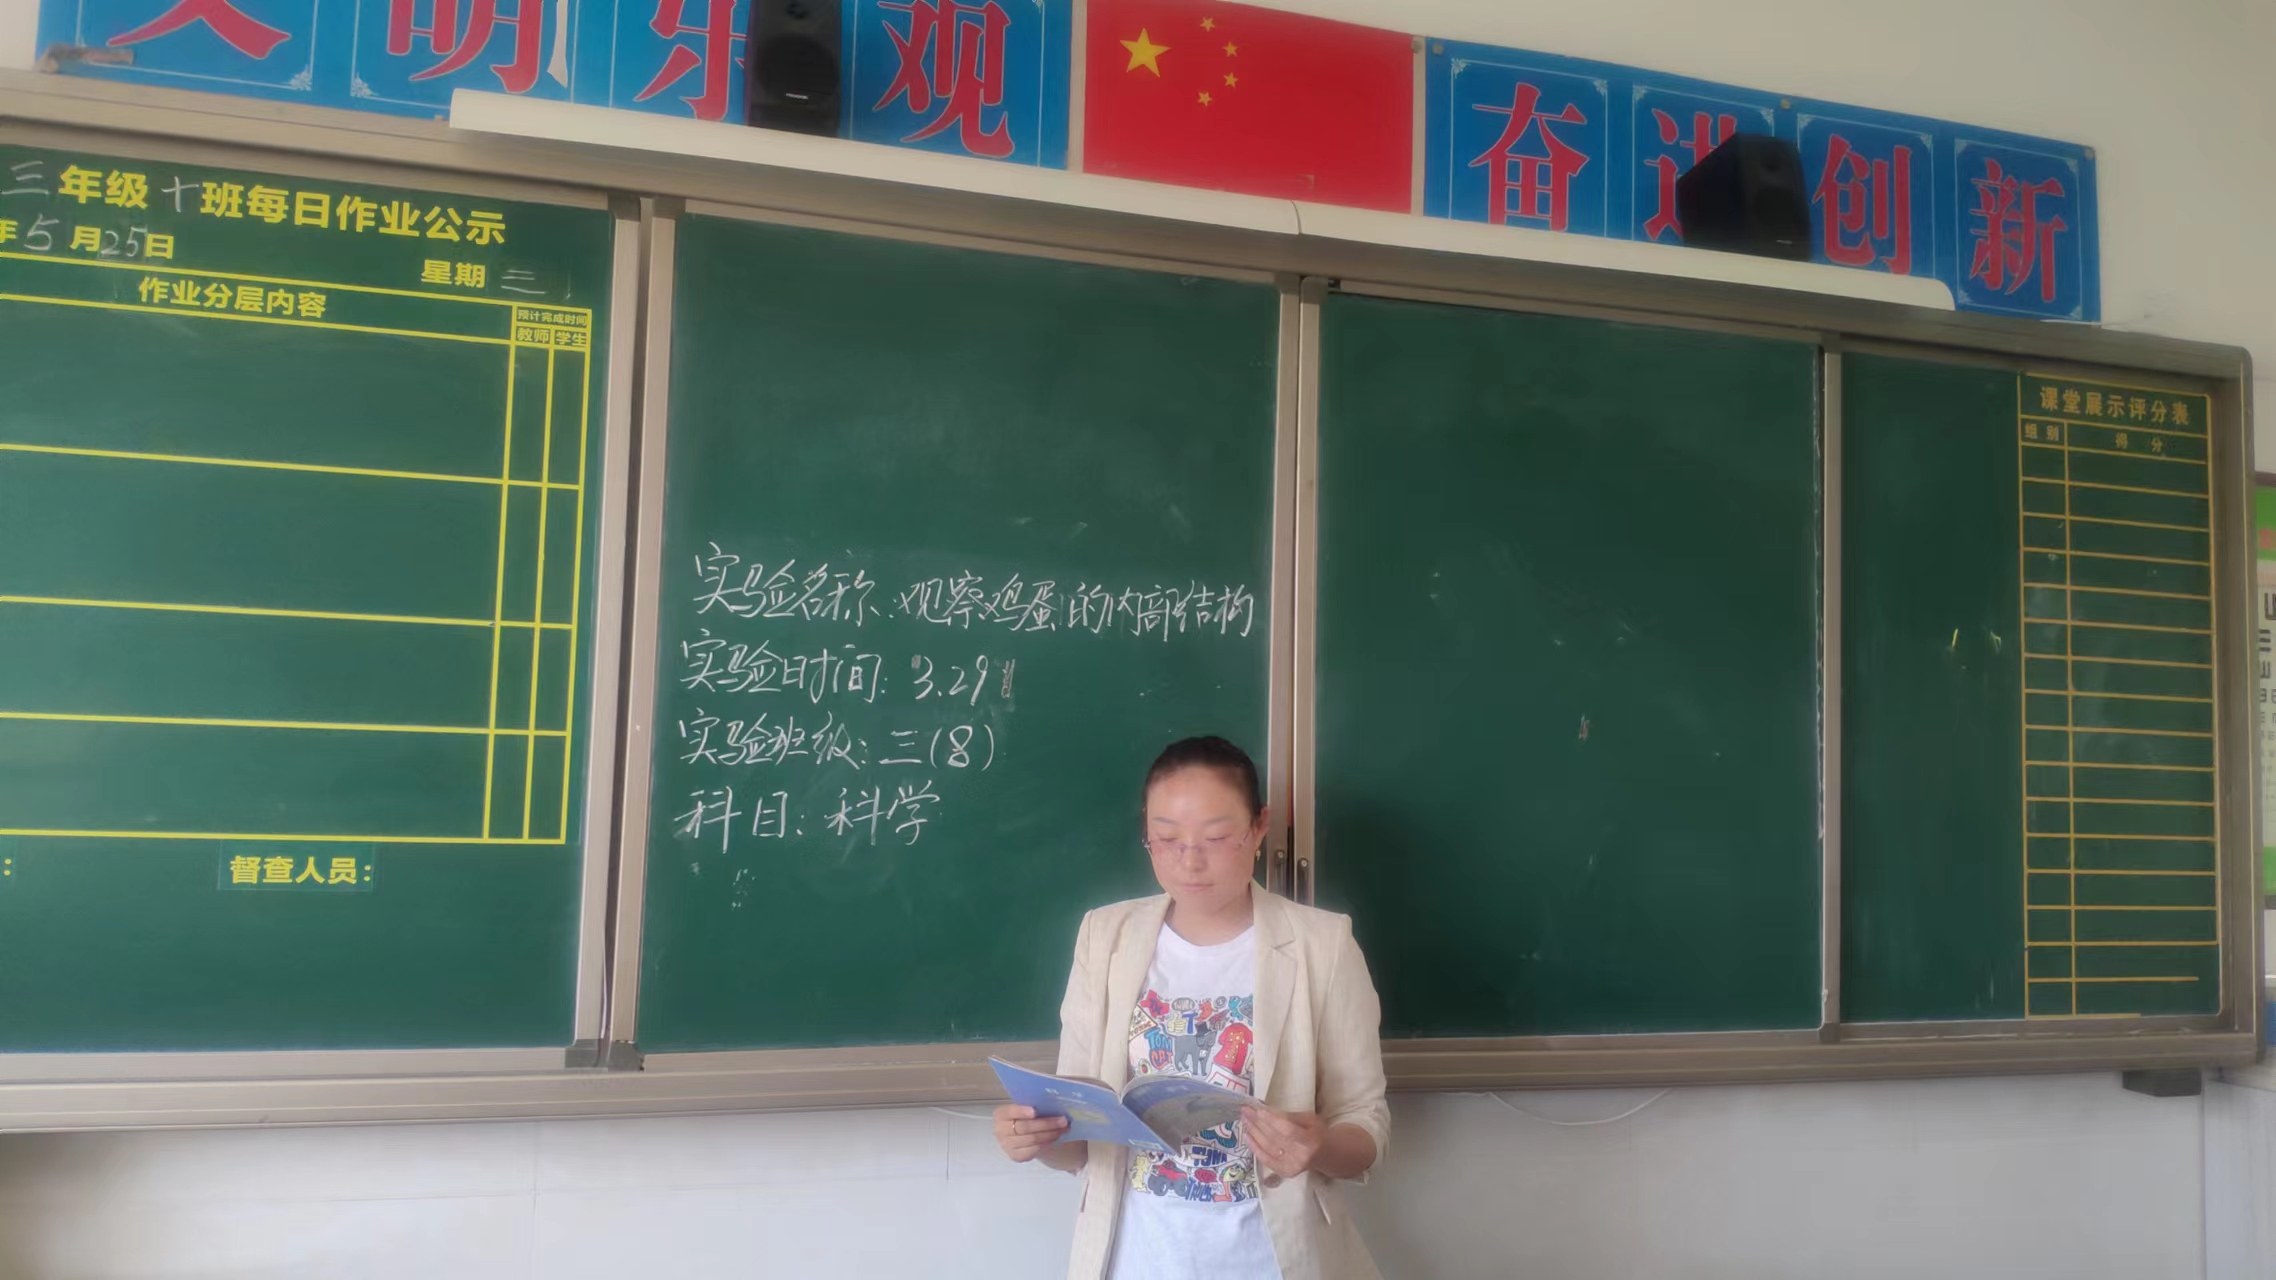 文明乐观
奋进创新
三年级十班每日作业公示
年5月25日
星期三
作业分层内容
预计完成时间
教师 学生
督查人员：
实验名称：观察鸡蛋的内部结构
实验时间：3.29
实验班级：三(8)
科目：科学
课堂展示评分表
组别 得分